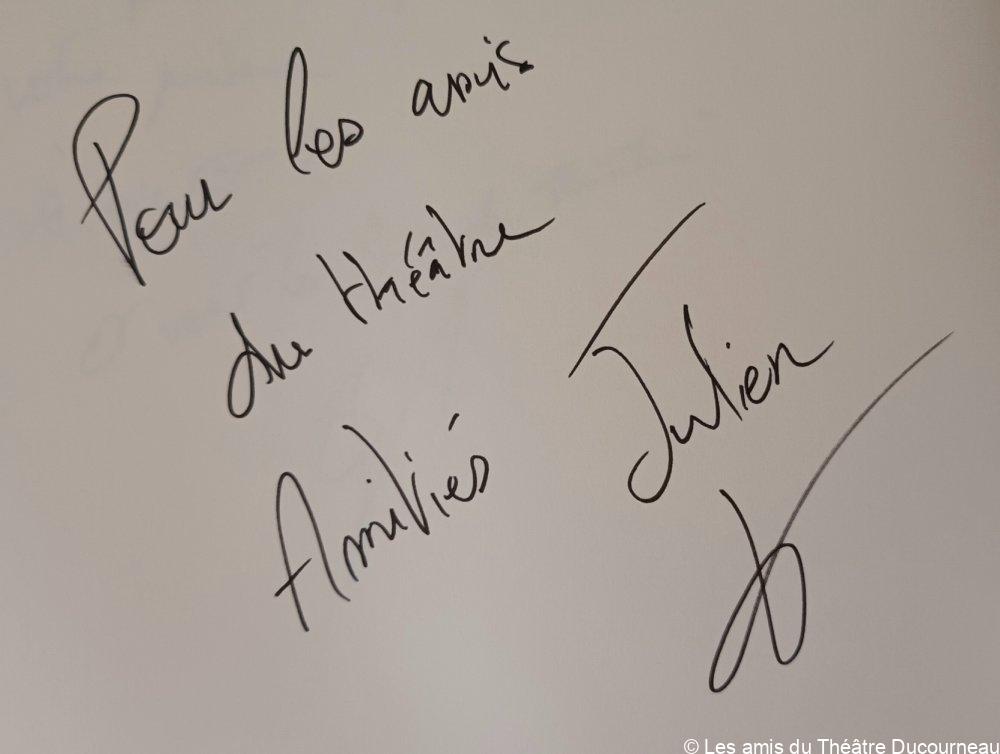 Pour les amis
du théâtre
Amitiés
Julien
© Les amis du Théâtre Ducourneau